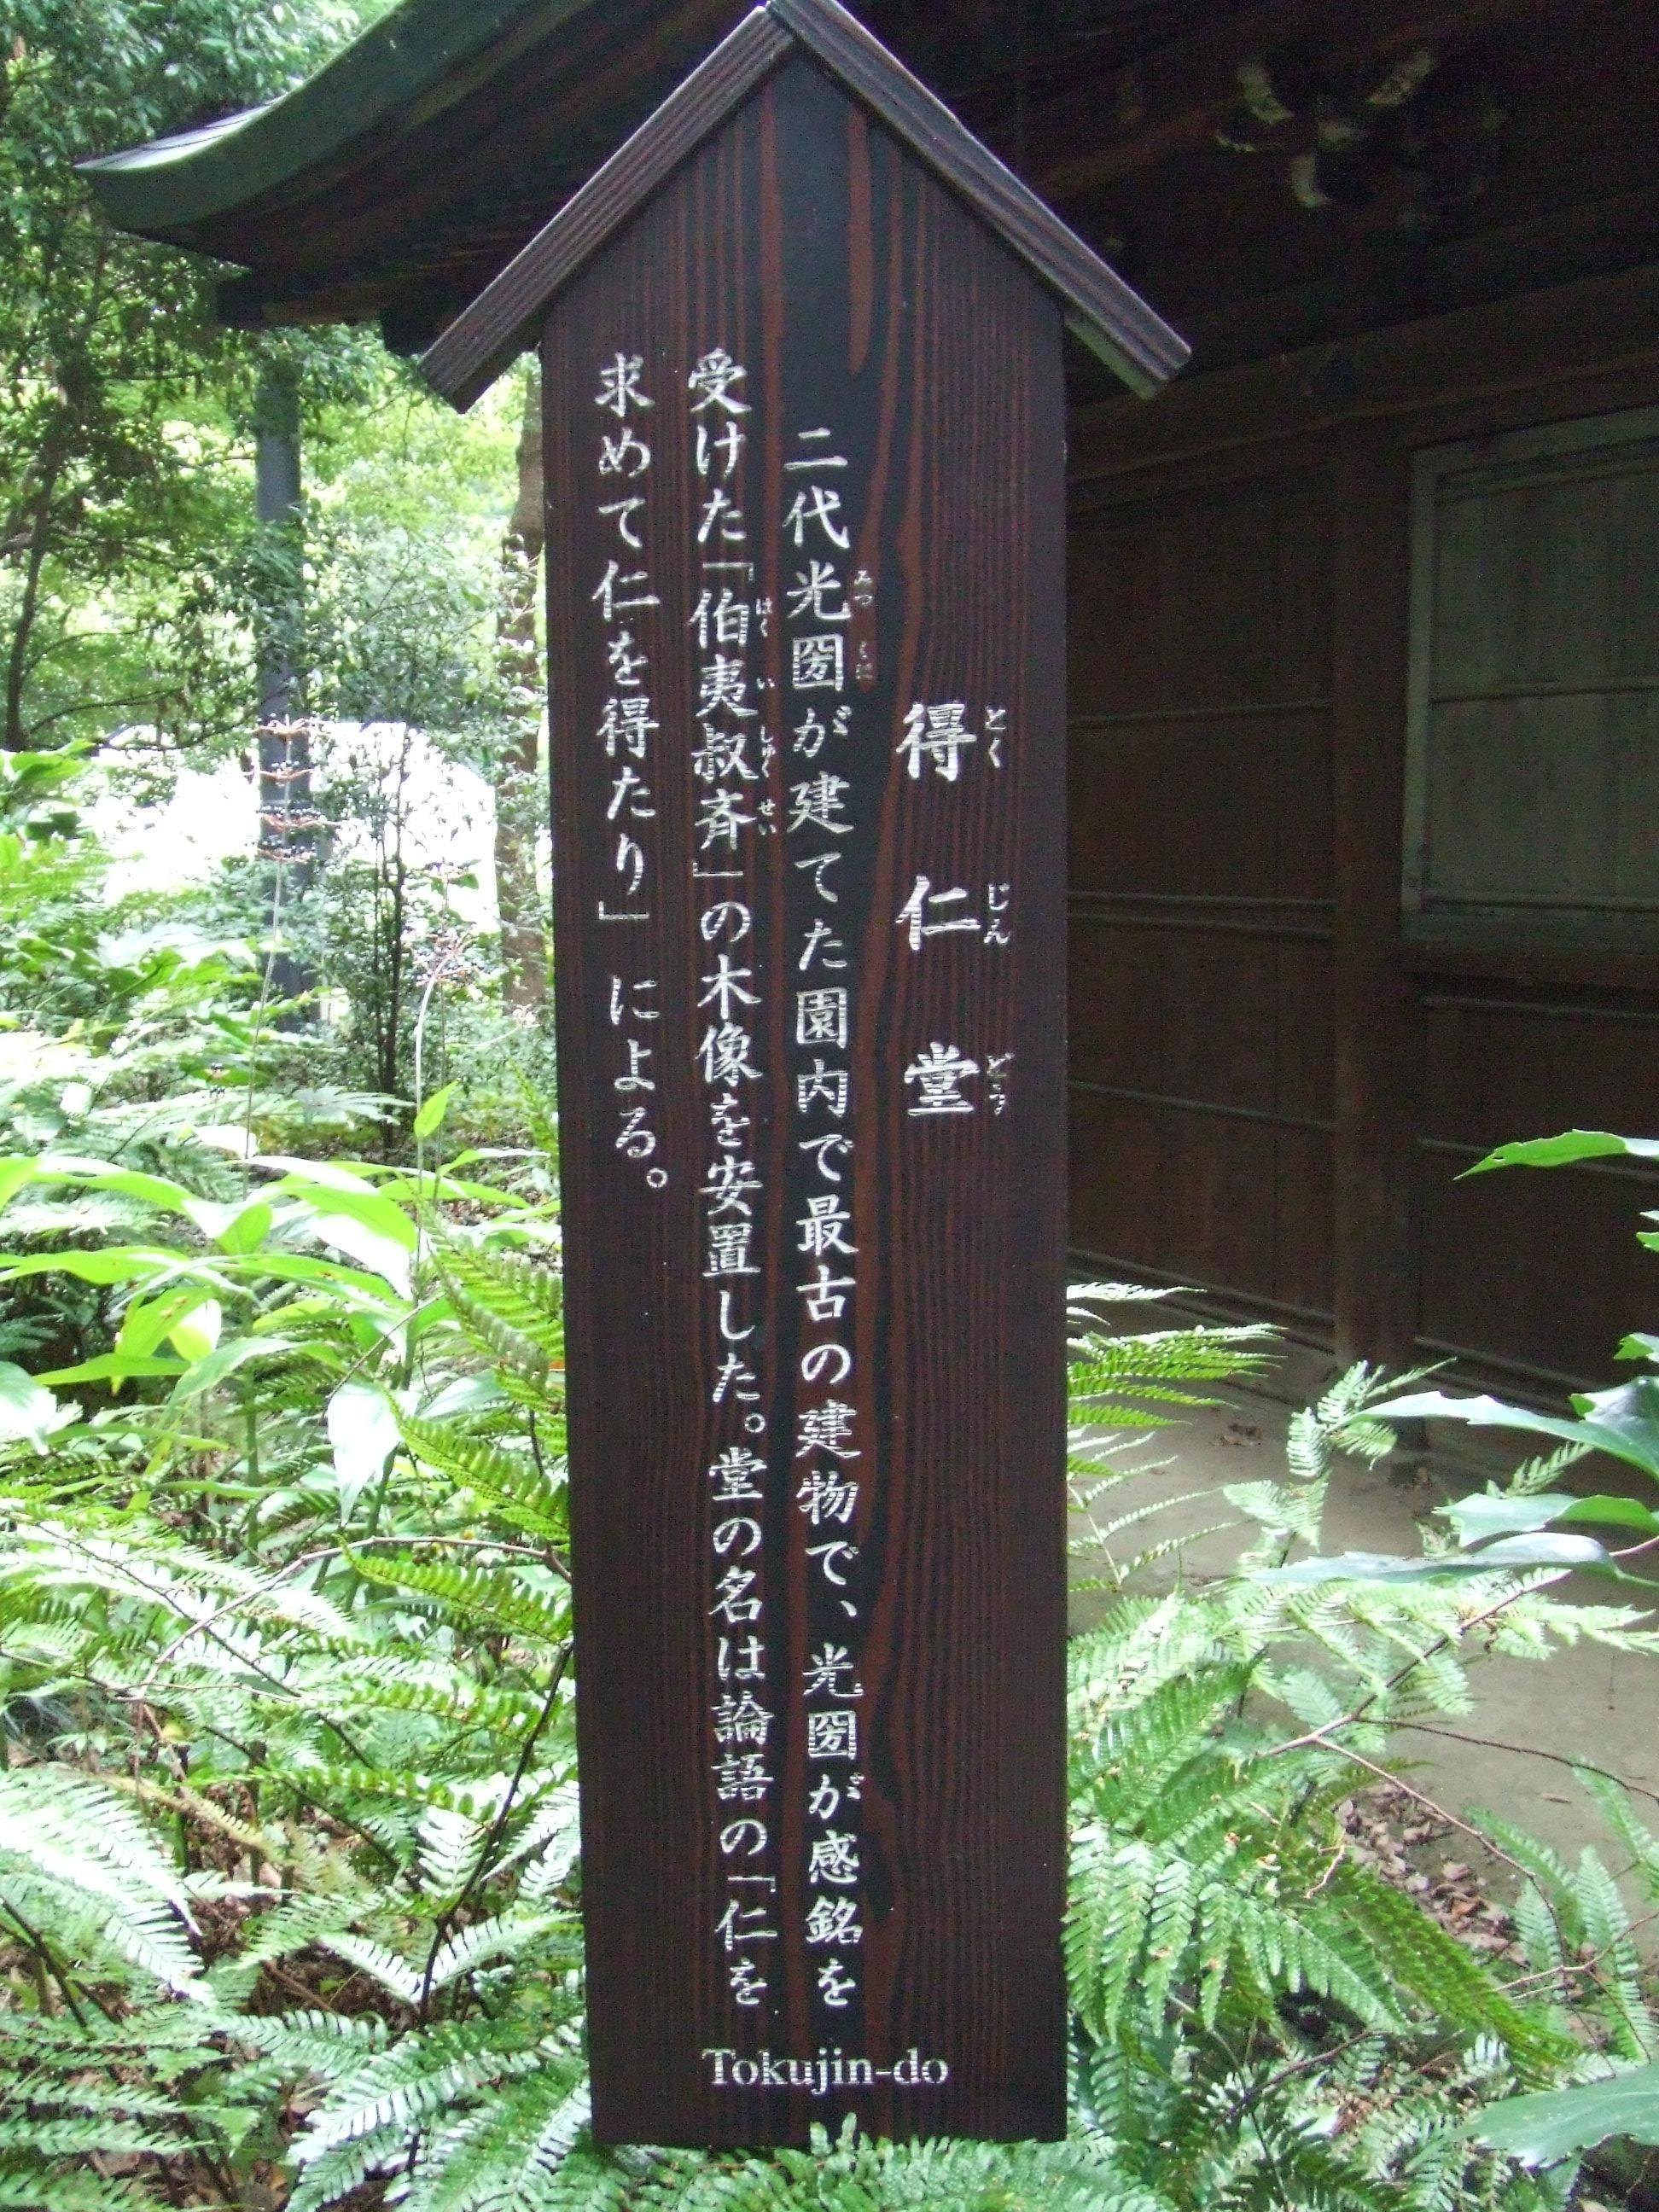 得仁堂
とくじんどう
二代光圀が建てた園内で最古の建物で、光圀が感銘を
みつくに
受けた「伯夷叔斉」の木像を安置した。堂の名は論語の「仁を
はくいしゅくせい
求めて仁を得たり」による。
Tokujin-do